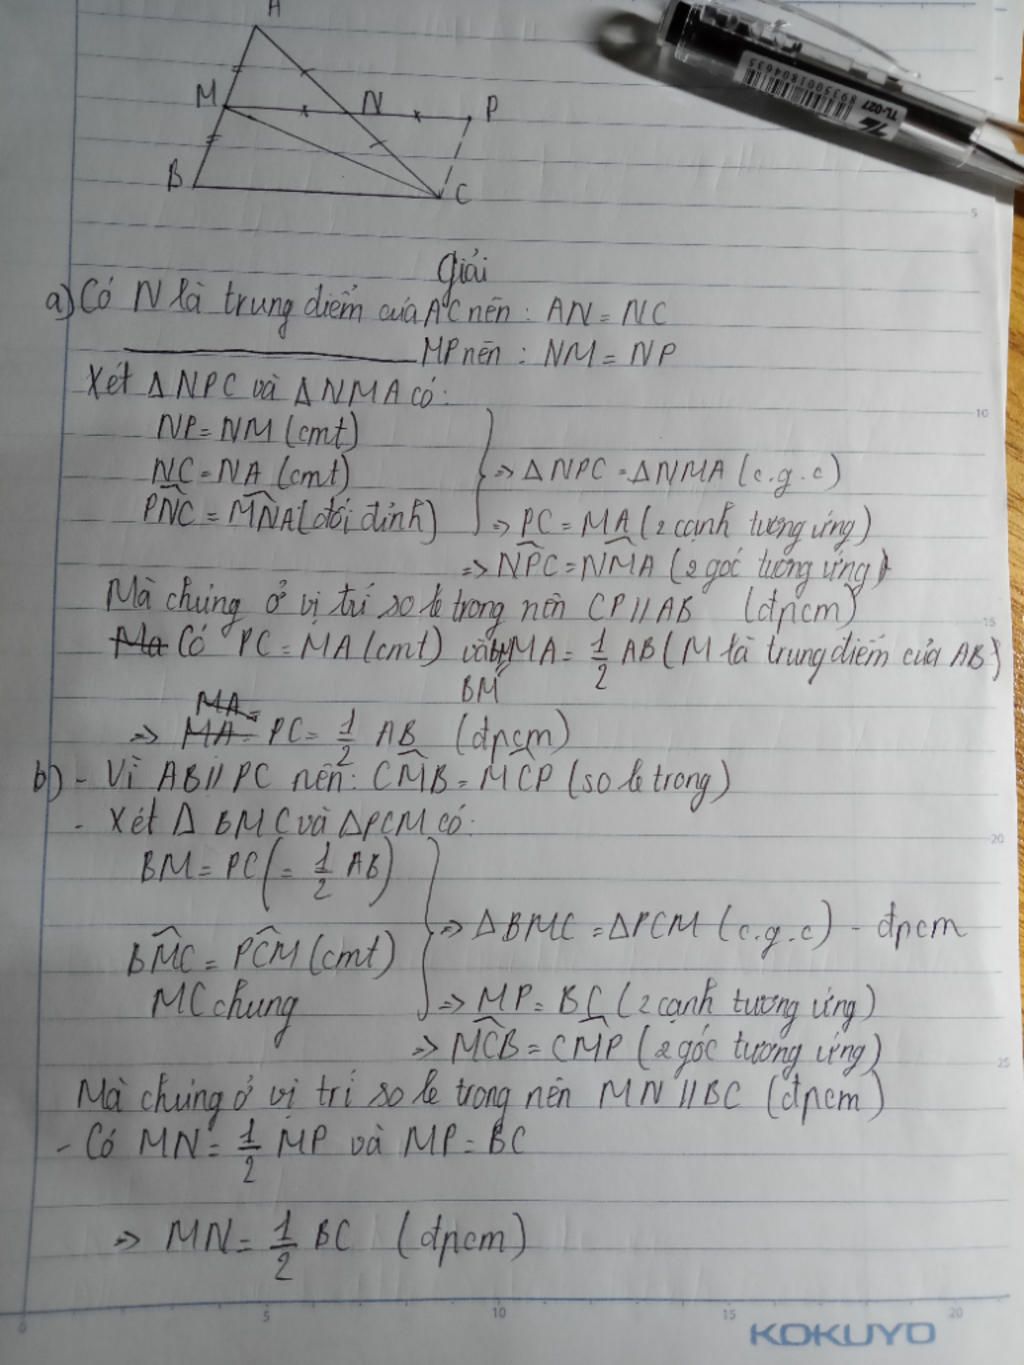 A
M
N
P
B
C
TL-027
8935001804635
5
Giải
a) Có N là trung điểm của AC nên : AN = NC
MP nên : NM = NP
Xét Δ NPC và Δ NMA có:
10
NP = NM (cmt)
NC = NA (cmt)
=> Δ NPC = Δ NMA (c.g.c)
PNC = MNA (đối đỉnh)
=> PC = MA (2 cạnh tương ứng)
=> NPC = NMA (2 góc tương ứng)
Mà chúng ở vị trí so le trong nên CP // AB (đpcm)
15
Ma Có PC = MA (cmt) và MA = 1/2 AB (M là trung điểm của AB)
BM
MA =
=> MA = PC = 1/2 AB (đpcm)
b) - Vì AB // PC nên: CMB = MCP (so le trong)
- Xét Δ BMC và Δ PCM có:
20
BM = PC (= 1/2 AB)
=> Δ BMC = Δ PCM (c.g.c) - đpcm
BMC = PCM (cmt)
MC chung
=> MP = BC (2 cạnh tương ứng)
=> MCB = CMP (2 góc tương ứng)
25
Mà chúng ở vị trí so le trong nên MN // BC (đpcm)
- Có MN = 1/2 MP và MP = BC
=> MN = 1/2 BC (đpcm)
0 5 10 15 20
KOKUYO